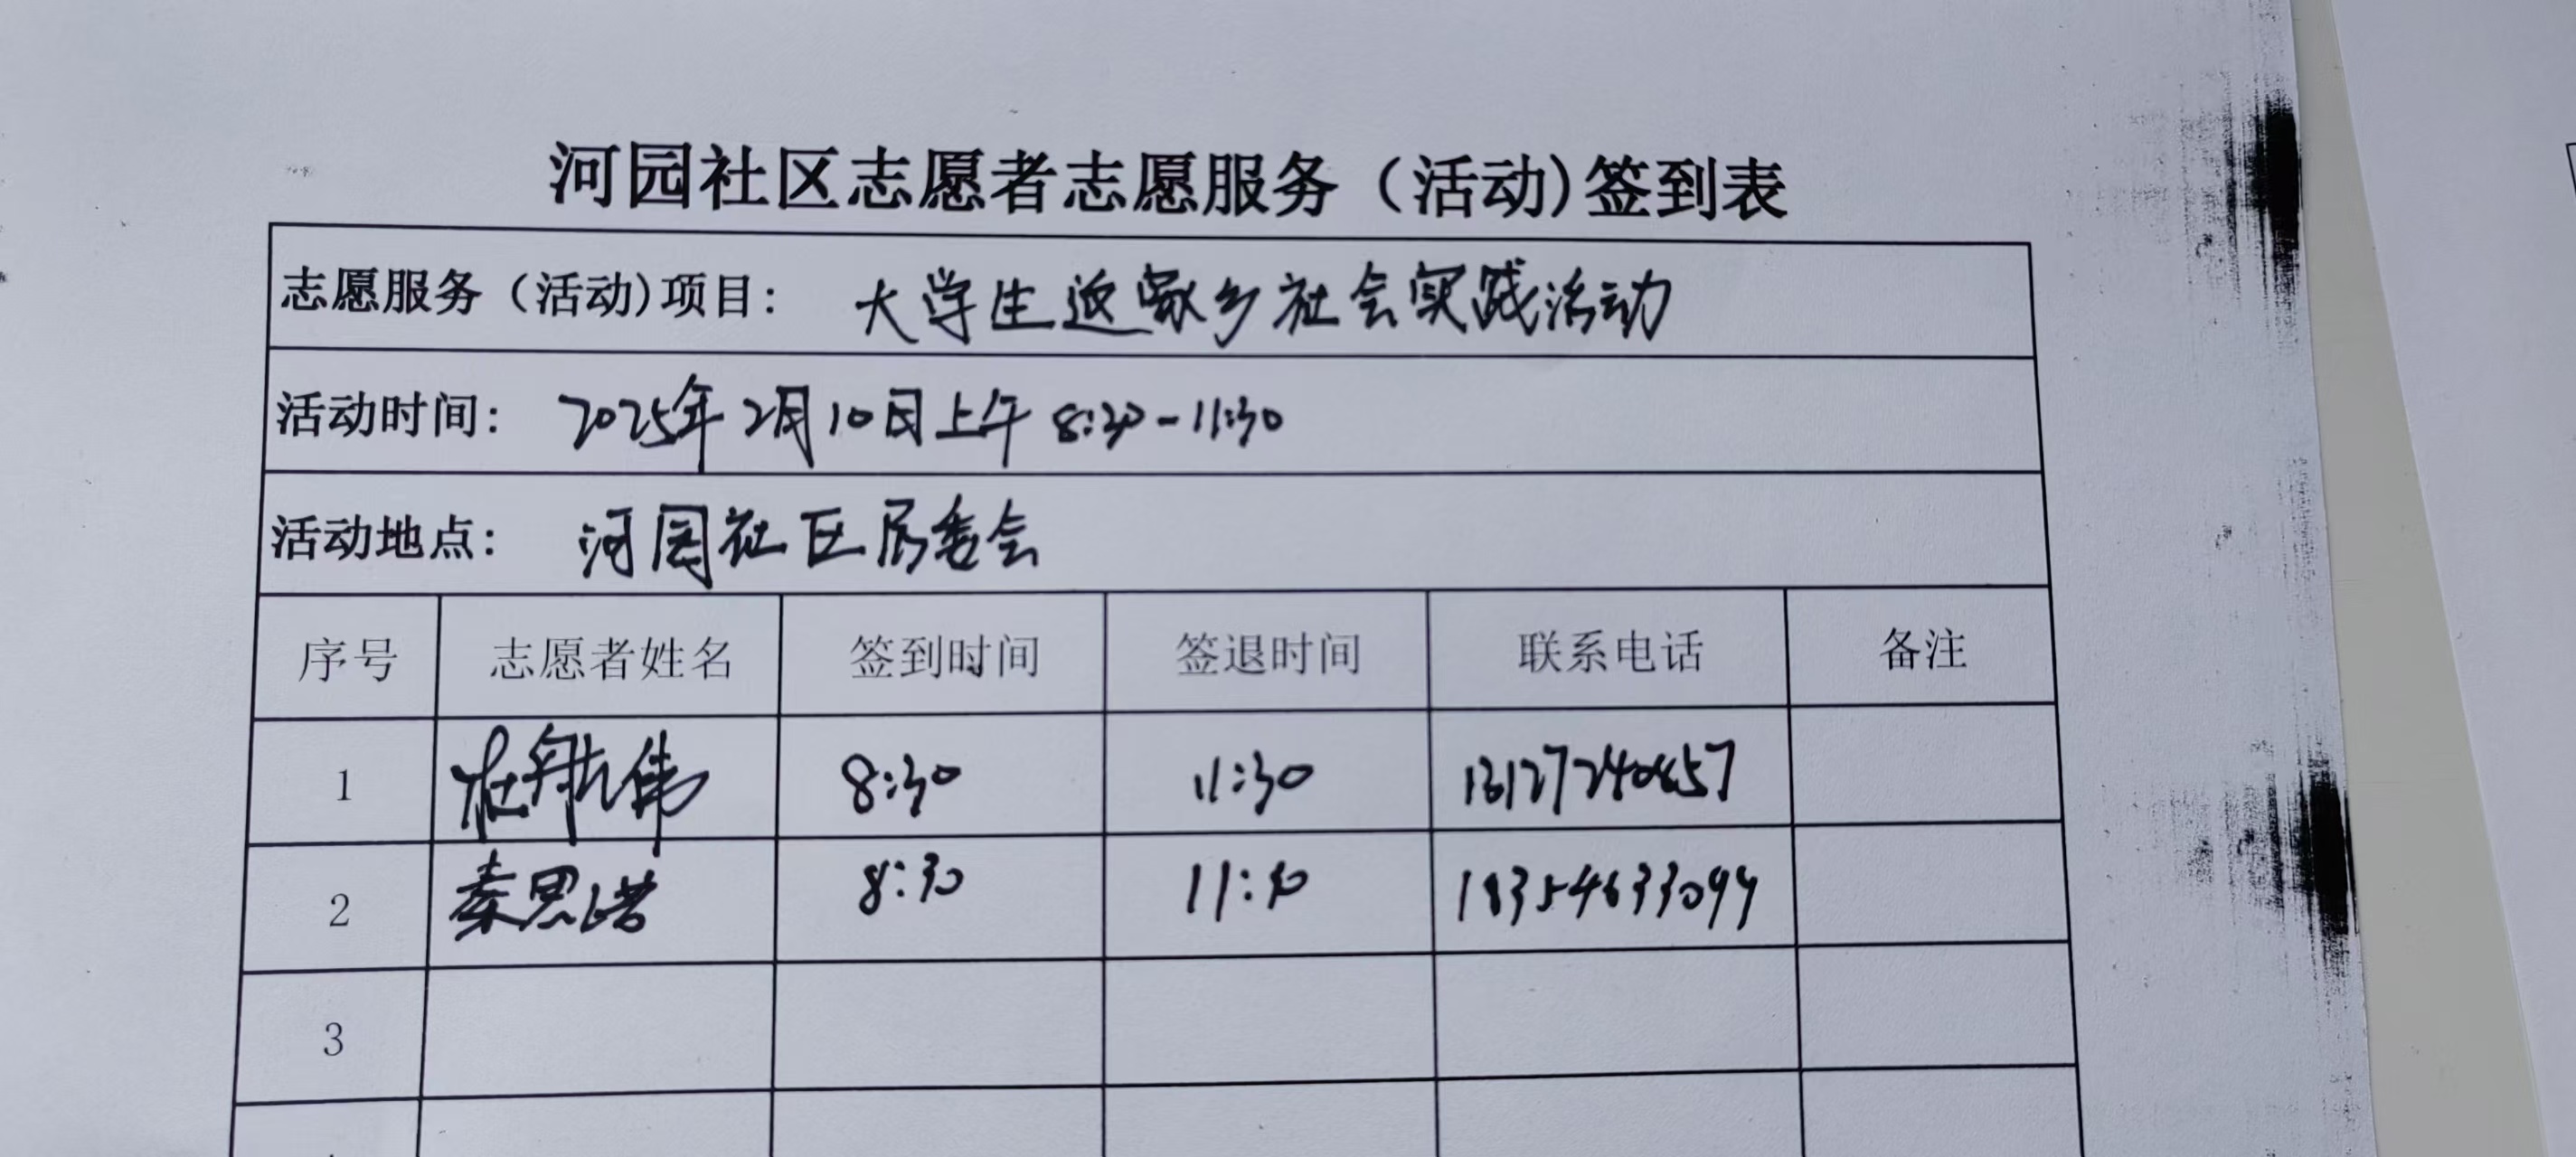 河园社区志愿者志愿服务（活动)签到表
志愿服务（活动)项目: 大学生返家乡社会实践活动
活动时间: 2025年2月10日上午 8:30-11:30
活动地点: 河园社区居委会
序号 志愿者姓名 签到时间 签退时间 联系电话 备注
1 杜航伟 8:30 11:30
2 秦思诺 8:30 11:30 18354633099
3